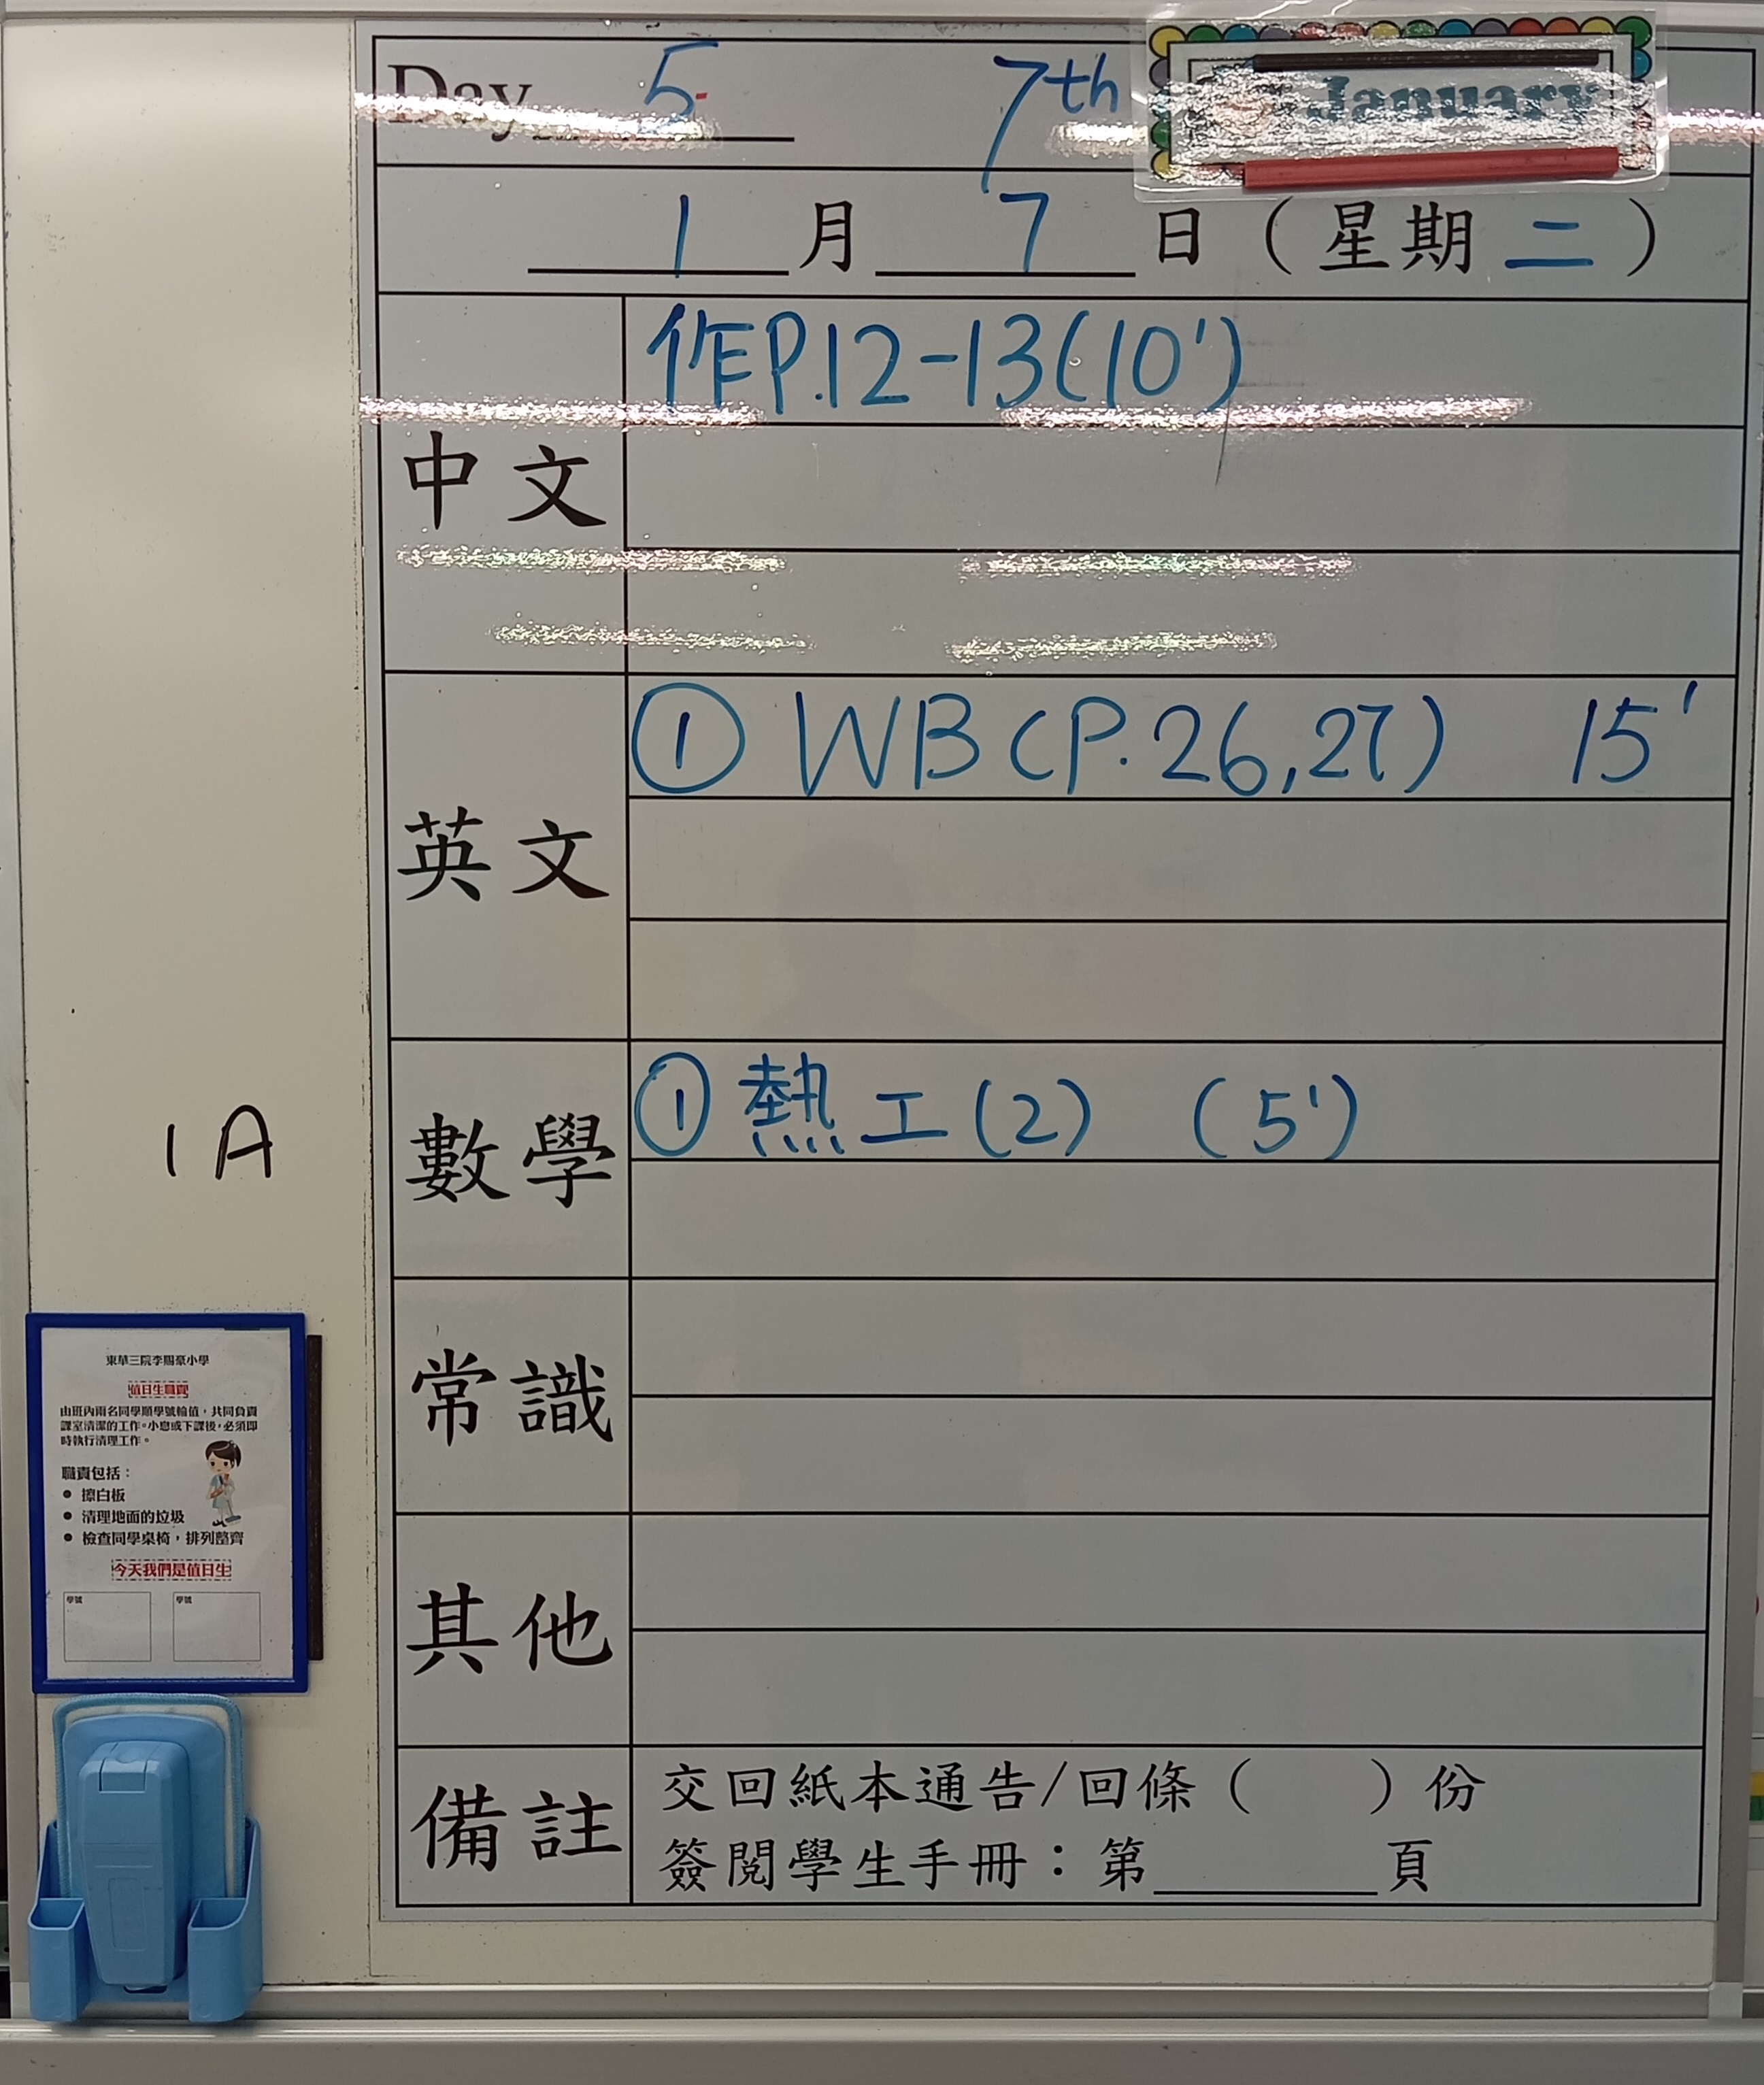 Day 5 7th January
1月7日(星期二)
中文
作P.12-13(10')
英文
① WB(P.26,27) 15'
數學
① 熱工(2) (5')
常識
其他
備註
交回紙本通告/回條( )份
簽閱學生手冊:第______頁
1A
東華三院李賜豪小學
值日生職責
由班內兩名同學順學號輪值,共同負責
課室清潔的工作。小息或下課後,必須即
時執行清理工作。
職責包括:
● 擦白板
● 清理地面的垃圾
● 檢查同學桌椅,排列整齊
今天我們是值日生
學號 學號